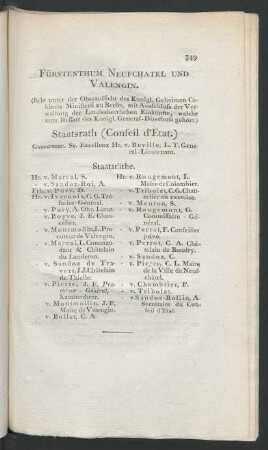 349
FÜRSTENTHUM NEUFCHATEL UND
VALENGIN.
(Steht unter der Oberaufsicht des Königl. Geheimen Ca-
binets-Ministerii zu Berlin, mit Ausschluss der Ver-
waltung der Landesherrlichen Einkünfte, welche
zum Ressort des Königl. General-Directorii gehört.)
Staatsrath (Conseil d'Etat.)
Gouverneur. Se. Excellenz Hr. v. Beville, L. T. Gene-
ral-Lieutenant.
Staatsräthe.
Hr. v. Marval, S.
- v. Sandoz-Roi, A.
Frh. v. Pury, D.
Hr. v. Ivernois, C. G. Tré-
sorier-Général.
- v. Pury, A. Obr. Lieut.
- v. Boyve, J. F. Chan-
celier.
- v. Montmollin, L. Pro-
cureur de Valengin.
- v. Marval, L. Comman-
dant & Châtelain
du Landeron.
- v. Sandoz de Tra-
vers, J. J. Châtelain
de Thielle.
- v. Pierre, J. F. Pro-
cureur-Général,
Kammerherr.
- v. Montmollin, J. F.
Maire de Valengin.
- v. Bullot, C. A.
Hr. v. Rougemont, L.
Maire de Colombier.
- v. Tribolet, C. G. Chan-
celier en exercice.
- v. Meuron, S.
- v. Rougemont, G.
Commissaire-Gé-
néral.
- v. Perrot, F. Conseiller
privé.
- v. Perrot, C. A. Châ-
telain de Boudry.
- v. Sandoz, C.
- v. Pierre, C. L. Maire
de la Ville de Neuf-
châtel.
- v. Chambrier, F.
- v. Tribolet.
- v. Sandoz-Rollin, A.
Secrétaire du Con-
seil d'Etat.